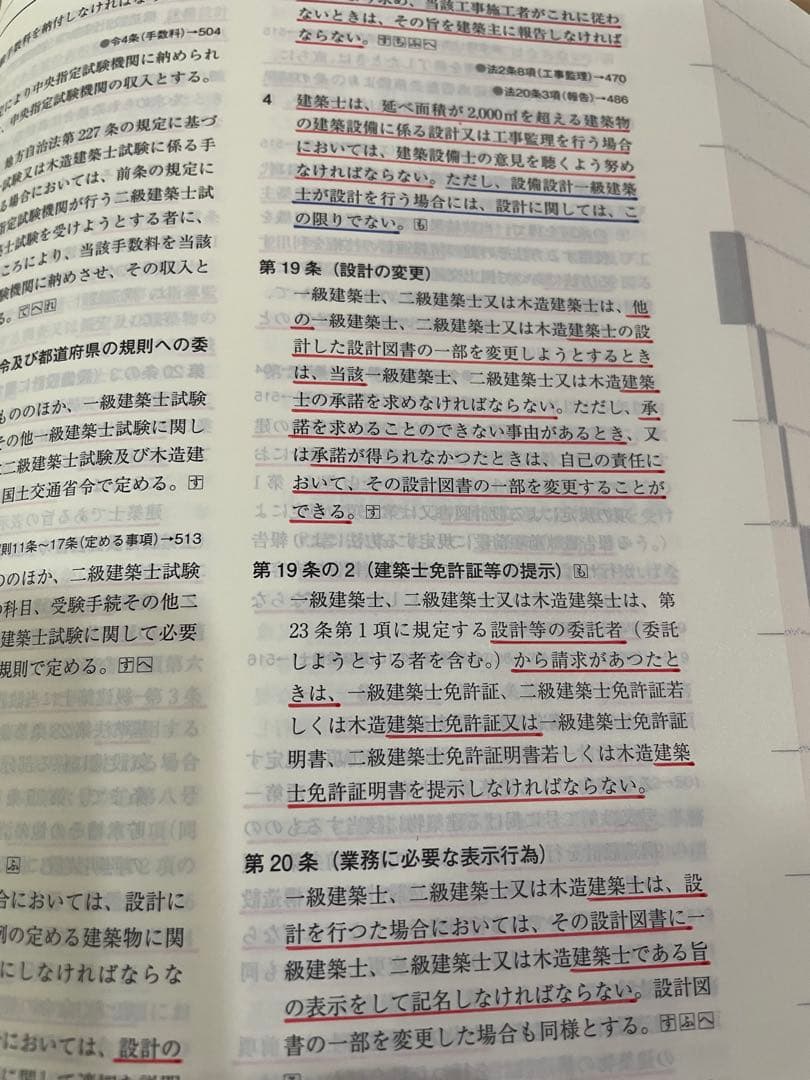 手数料を納付しなければな
●令4条(手数料)→504
により中央指定試験機関に納められ
、中央指定試験機関の収入とする。
地方自治法第227条の規定に基づ
試験又は木造建築士試験に係る手
る場合においては、前条の規定に
指定試験機関が行う二級建築士試
築士試験を受けようとする者に、
ころにより、当該手数料を当該
験機関に納めさせ、その収入と
る。てへれ
令及び都道府県の規則への委
もののほか、一級建築士試験
その他一級建築士試験に関し
二級建築士試験及び木造建
国土交通省令で定める。す
則11条〜17条(定める事項)→513
ののほか、二級建築士試験
の科目、受験手続その他二
建築士試験に関して必要
規則で定める。すへ
ふ
合においては、設計に
例の定める建築物に関
にしなければならな
においては、設計の
求め、当該工事施工者がこれに従わ
ないときは、その旨を建築主に報告しなければ
ならない。すもふへ
●法2条8項(工事監理)→470
●法20条3項(報告)→486
4 建築士は、延べ面積が2,000㎡を超える建築物
の建築設備に係る設計又は工事監理を行う場合
においては、建築設備士の意見を聴くよう努め
なければならない。ただし、設備設計一級建築
士が設計を行う場合には、設計に関しては、こ
の限りでない。も
第19条(設計の変更)
一級建築士、二級建築士又は木造建築士は、他
の一級建築士、二級建築士又は木造建築士の設
計した設計図書の一部を変更しようとするとき
は、当該一級建築士、二級建築士又は木造建築
士の承諾を求めなければならない。ただし、承
諾を求めることのできない事由があるとき、又
は承諾が得られなかつたときは、自己の責任に
おいて、その設計図書の一部を変更することが
できる。す
第19条の2(建築士免許証等の提示)も
一級建築士、二級建築士又は木造建築士は、第
23条第1項に規定する設計等の委託者(委託
しようとする者を含む。)から請求があつたと
きは、一級建築士免許証、二級建築士免許証若
しくは木造建築士免許証又は一級建築士免許証
明書、二級建築士免許証明書若しくは木造建築
士免許証明書を提示しなければならない。
第20条(業務に必要な表示行為)
一級建築士、二級建築士又は木造建築士は、設
計を行つた場合においては、その設計図書に一
級建築士、二級建築士又は木造建築士である旨
の表示をして記名しなければならない。設計図
書の一部を変更した場合も同様とする。すふへ